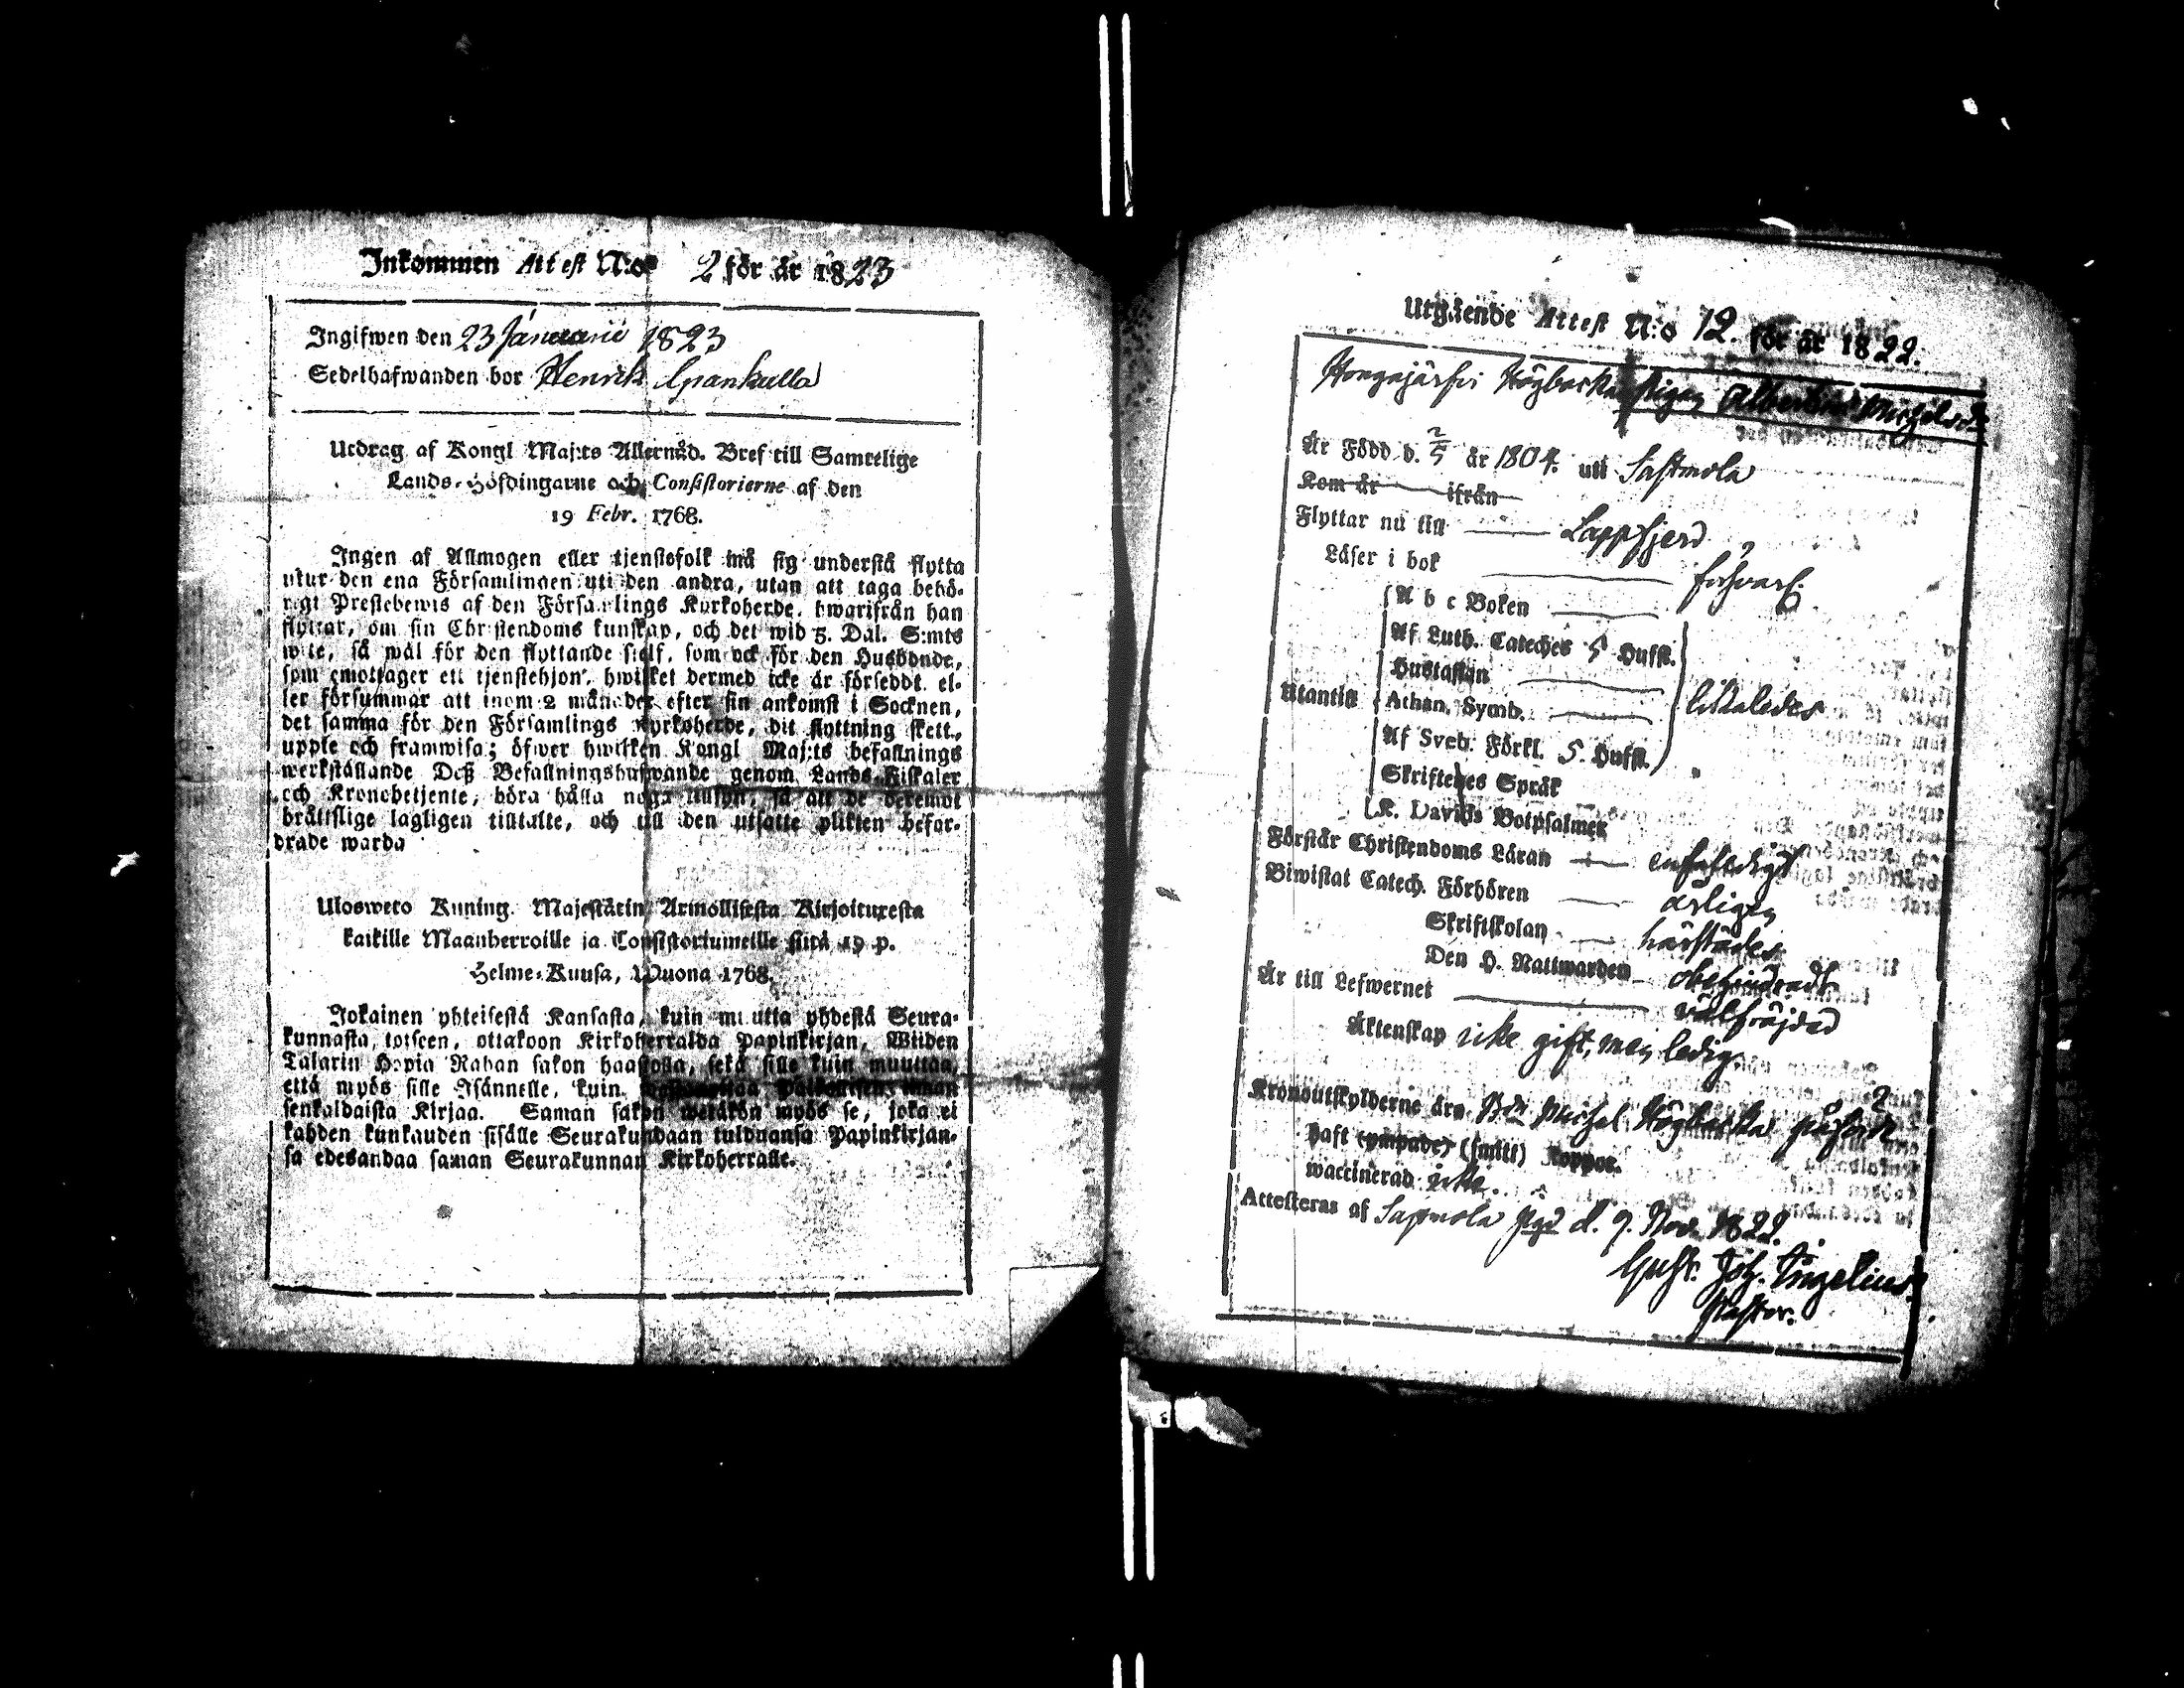 Inkommen Attest N:o 2 för år 1823
Ingifwen den 23 Januarii 1823
Sedelhafwanden bor Henrik Grankulla
Utdrag af Kongl Maj:ts Allernåd. Bref till Samtelige
Lands-Höfdingarne och Consistorierne af den
19 Febr. 1768.
Ingen af Allmogen eller tjenstefolk må sig understå flytta
utur den ena Församlingen uti den andra, utan att taga behö-
rigt Prestebewis af den Församlings Kyrkoherde, hwarifrån han
flyttar, om sin Christendoms kunskap, och det wid 5. Dal. S:mts
wite, så wäl för den flyttande sielf, som ock för den Husbonde,
som emottager ett tjenstehjon, hwilket dermed icke är försedt, el-
ler försummar att inom 2 månader efter sin ankomst i Socknen,
det samma för den Församlings Kyrkoherde, dit flyttning skett,
uppte och framwisa; öfwer hwilken Kongl Maj:ts befallnings
werkställande Deß Befallningshafwande genom Lands-Fiskaler
och Kronobetjente, böra hålla noga tillsyn, så att de deremot
bråttslige lagligen tilltalte, och till den utsatte plikten befor-
drade warda
Ulosweto Kuning. Majestätin Armollisesta Kirjoituxesta
kaikille Maanherroille ja Consistoriumeille siitä 19 p.
Helme-Kuusa, Wuona 1768.
Jokainen yhteisestä Kansasta, kuin muutta yhdestä Seura-
kunnasta toiseen, ottakoon Kirkoherralda Papinkirjan, Wiiden
Talarin Hopia Rahan sakon haastolla, sekä sille kuin muuttaa,
että myös sille Isännelle, kuin
senkaldaista Kirjaa. Saman sakon wetäkön myös se, joka ei
kahden kunkauden sisälle Seurakundaan tulduansa Papinkirjan-
sa edesandaa saman Seurakunnan Kirkoherralle.
Utgående Attest N:o 12. för år 1822.
Högbacka Pigan Albertina Michelsdr
Är Född d. 2/5 år 1804. uti Sastmola
Kom år ifrån
Flyttar nu till Lappfjerd
Läser i bok försvarl.
A b c Boken
Af Luth. Cateches 5 Hufst.
Hustaflan
Utantill Athan. Symb. likaledes
Af Sveb. Förkl. 5. Hufst.
Skriftenes Språk
K. Davids Botpsalmer
Förstår Christendoms Läran enfaldigt
Biwistat Catech. Förhören årligen
Skriftskolan härstädes
Den H. Nattwarden obehindradt
Är till Lefwernet välfrejdad
Äktenskap icke gift, men ledig.
Kronoutskylderne äro Michel Högbacka påförde
haft (ympade) (smitt) koppor.
waccinerad icke.
Attesteras af Sastmola Pgd d. 9. Nov. 1822.
Gust. Joh. Ingelius.
Pastor.